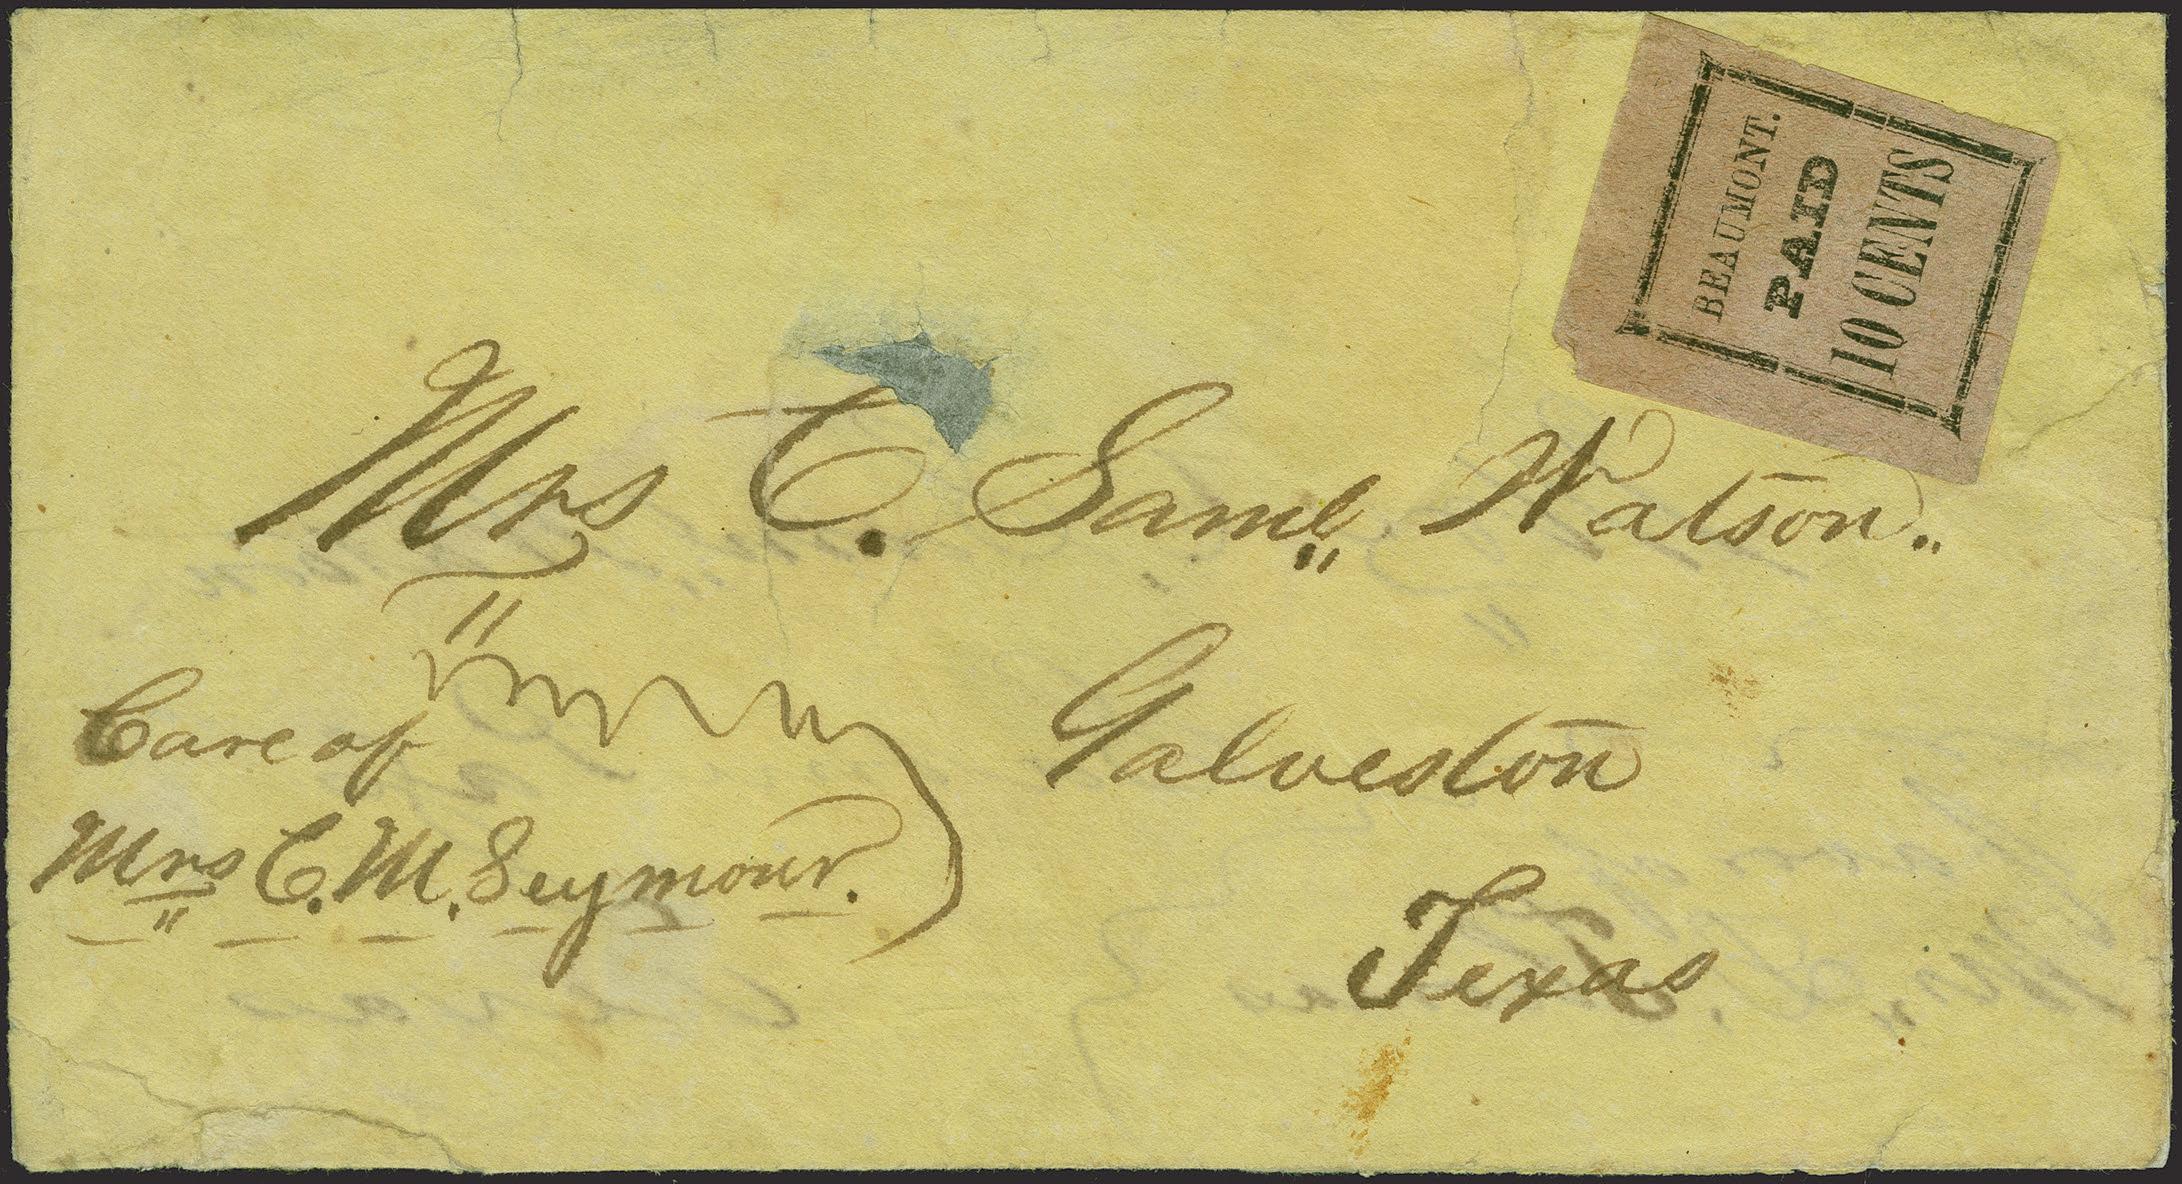 BEAUMONT.
PAID
10 CENTS
Mrs C. Saml. Watson.
Galveston
Texas
Care of
Mrs C. M. Seymour.